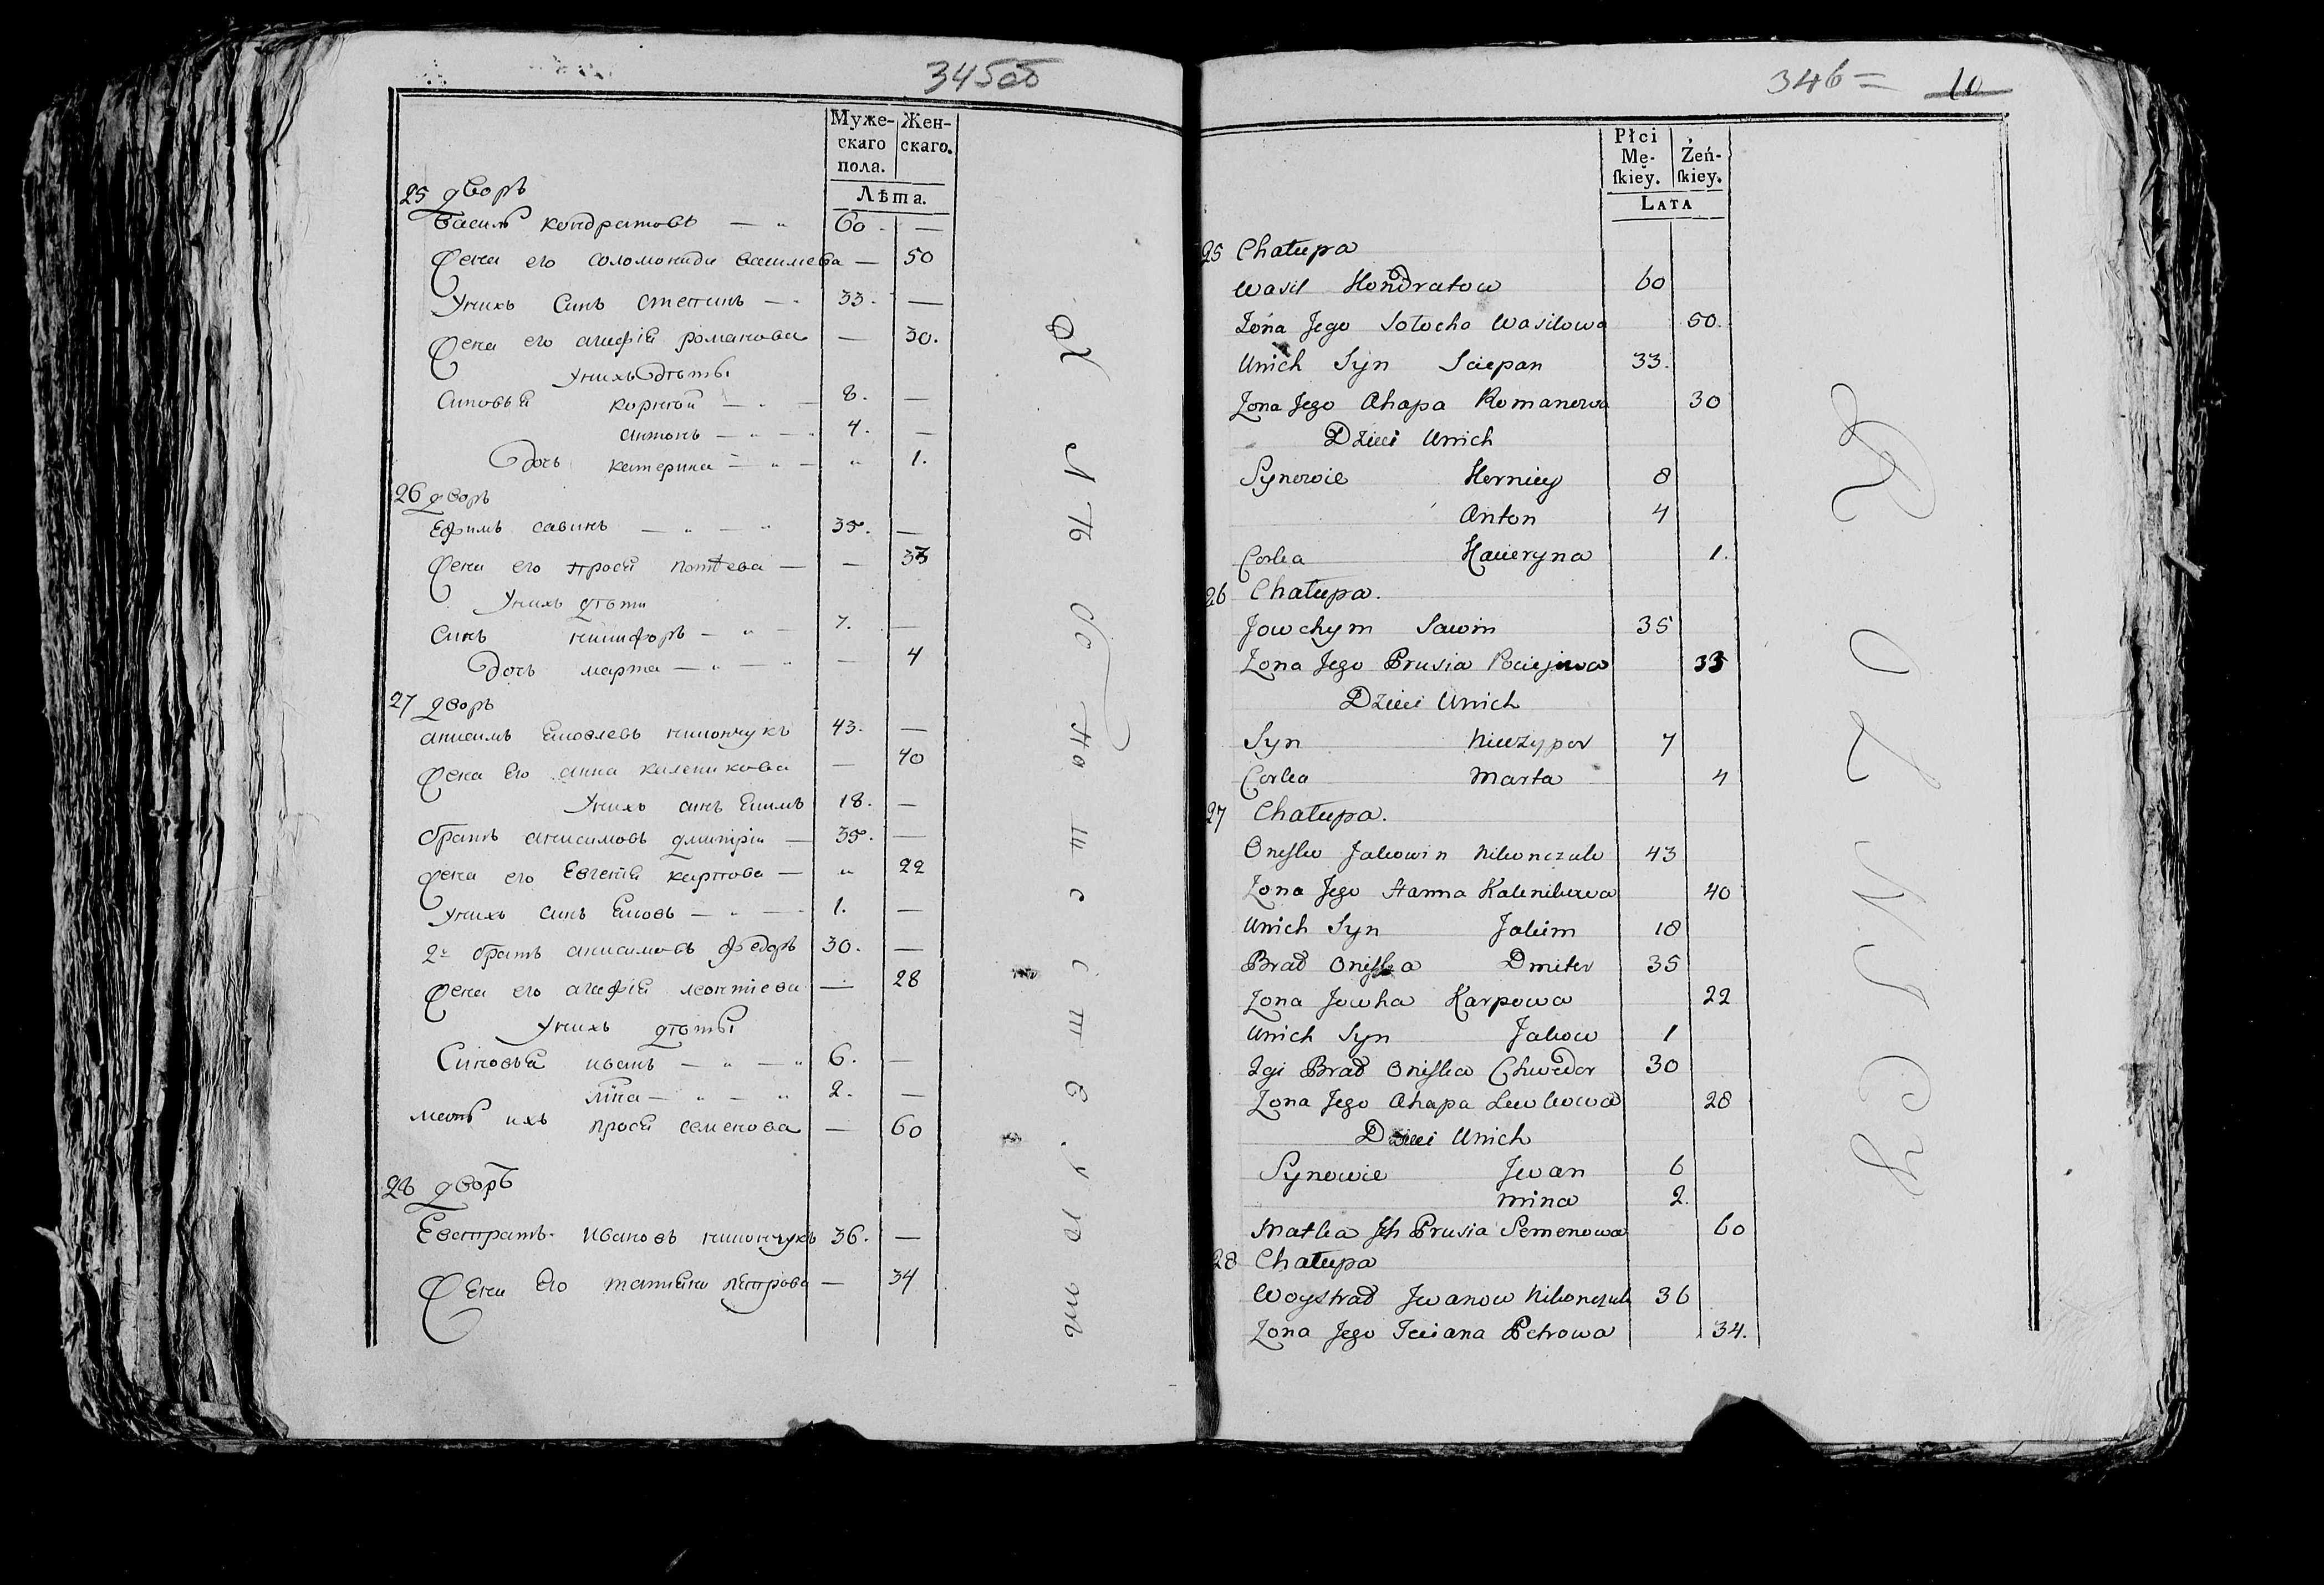 345об
Муже-
скаго
пола.
Жен-
скаго.
Лѣта.
25 дворъ
Василь кондратовъ — " 60 —
Жена его соломонида василева — 50
У нихъ Синъ степанъ — 33. —
Жена его агафія романова — 30.
У нихъ дѣти
Синовья корней — 8. —
антонъ — " — 4. —
дочь катерина — " — " 1.
26 дворъ
Ефимъ савинъ — " — " 35. —
Жена его прося потѣева — — 33
У нихъ дѣти
Синъ никифоръ — " — 7. —
дочь марта — " — " — 4
27 дворъ
анисимъ яковлевъ никончукъ 43. —
Жена его анна каленикова — 40
У нихъ синъ якимъ 18. —
братъ анисимовъ дмитрій — 35. —
Жена его Евгенія карпова — " 22
У нихъ синъ яковъ — " — 1. —
2й братъ анисимовъ федоръ 30. —
Жена его агафія леонтіева — 28
У нихъ дѣти
Синовья иванъ — " — " 6. —
міна — " — " 2. —
мать ихъ прося семенова — 60
28 дворъ
Евстратъ ивановъ никончукъ 36. —
Жена его татияна петрова — 34
346 = 10
Płci
Mę-
skiey.
Żeń-
skiey.
LATA
25 Chałupa
Wasil Kondratow 60
Żona Jego Sołocha Wasilowa 50.
Unich Syn Sciepan 33.
Żona Jego Ahapa Romanowa 30
Dzieci Unich
Synowie Kerniey 8
Anton 4
Corka Kacieryna 1.
26 Chałupa.
Jowchym Sawin 35
Zona Jego Prusia Pociejowa 33
Dzieci Unich
Syn Nieczypor 7
Corka Marta 4
27 Chałupa.
Onisko Jakowin Nikonczuk 43
Zona Jego Hanna Kalenikowa 40
Unich Syn Jakim 18
Brad Oniska Dmiter 35
Zona Jowha Karpowa 22
Unich Syn Jakow 1
2gi Brad Oniska Chwedor 30
Zona Jego Ahapa Lewkowa 28
Dzieci Unich
Synowie Jwan 6
Mina 2.
Matka Jch Prusia Semenowa 60
28 Chałupa
Woystrad Jwanow Nikonczuk 36
Zona Jego Teciana Petrowa 34.